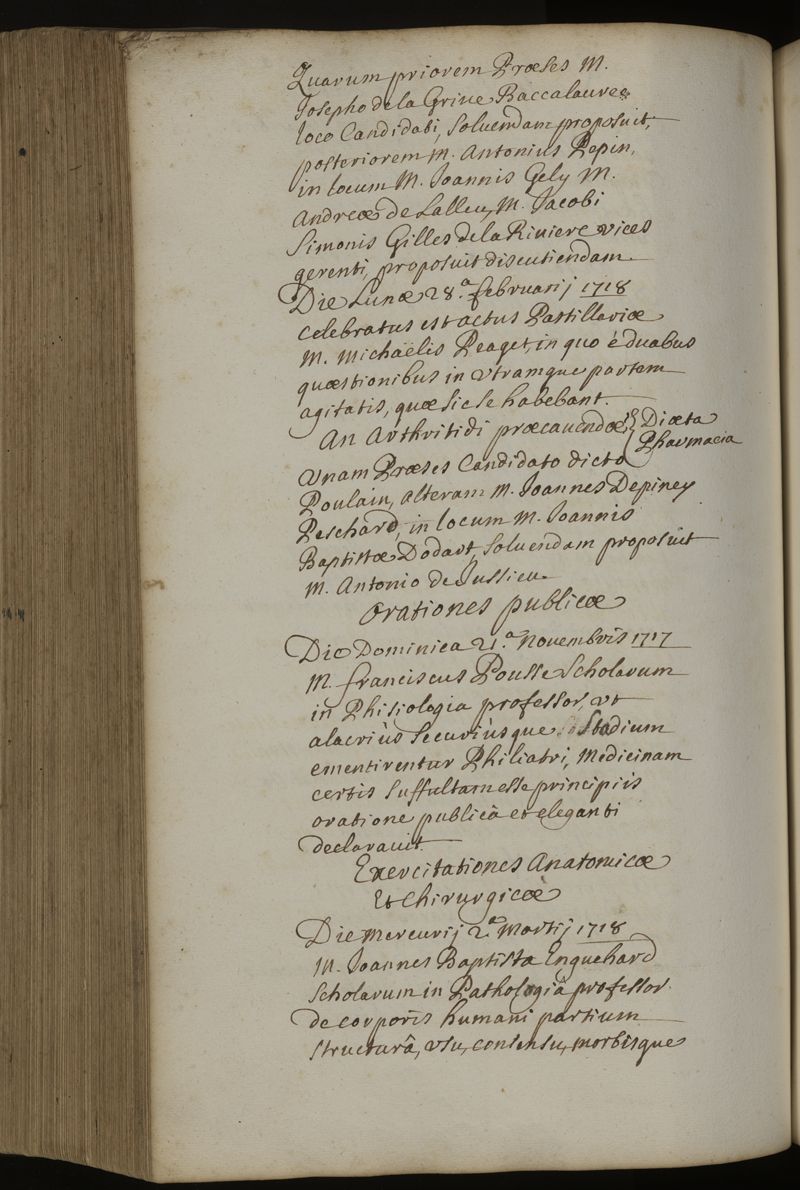 Quarum priorem Præses M.
Josepho de la Grive Baccalaureo
loco Candidati, soluendam proposuit,
posteriorem M. Antonius Pepin,
in locum M. Joannis Gely M.
Andreæ de Lalleu, M. Jacobi
Simonis Gilles de la Riuiere vices
gerenti, proposuit discutiendam.
Die Lunæ 28.ª februarij 1718
celebratus est actus Pastillariæ
M. Michaëlis Peaget, in quo è duabus
quæstionibus in vtramque partem
agitatis, quæ sic se habebant.
An Arthritidi præcauendæ, { Diæta
Pharmacia
vnam Præses Candidato dicto
Poulain, alteram M. Joannes Depiney
Peschard, in locum M. Joannis
Baptistæ Dodart, soluendam proposuit
M. Antonio de Jussieu.
Orationes publicæ
Die Dominica 21.ª Novembris 1717
M. franciscus Pousse Scholarum
in Phisiologia professor, vt
alacriùs securiùsque Stadium
ementirentur Philiatri, Medicinam
certis suffultam esse principiis
oratione publicâ et eleganti
declarauit.
Exercitationes Anatomicæ
Et Chirurgicæ
Die Mercurij 2ª Martij 1718
M. Joannes Baptista Enguehard
Scholarum in Pathologiâ professor
de corporis humani partium
structurâ, vsu, consensu, morbisque